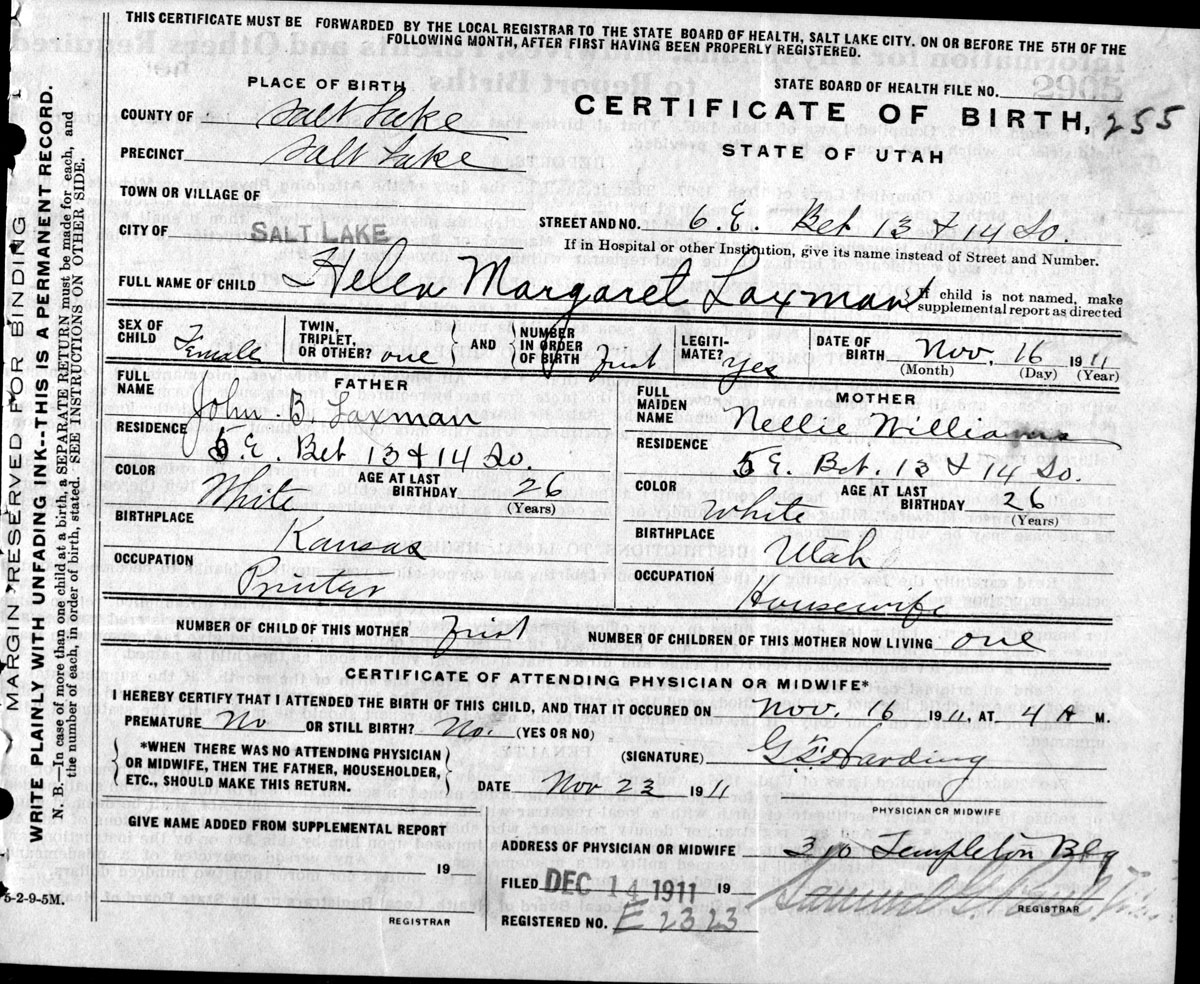 THIS CERTIFICATE MUST BE FORWARDED BY THE LOCAL REGISTRAR TO THE STATE BOARD OF HEALTH, SALT LAKE CITY. ON OR BEFORE THE 5TH OF THE
FOLLOWING MONTH, AFTER FIRST HAVING BEEN PROPERLY REGISTERED.
PLACE OF BIRTH
STATE BOARD OF HEALTH FILE NO.
COUNTY OF Salt Lake
CERTIFICATE OF BIRTH, 255
PRECINCT Salt Lake
STATE OF UTAH
TOWN OR VILLAGE OF
STREET AND NO. 6 E. Bet 13 & 14 So.
CITY OF SALT LAKE
If in Hospital or other Institution, give its name instead of Street and Number.
FULL NAME OF CHILD Helen Margaret Laxman
If child is not named, make
supplemental report as directed
SEX OF CHILD Female
TWIN, TRIPLET, OR OTHER? one
AND
NUMBER IN ORDER OF BIRTH first
LEGITI- MATE? yes
DATE OF BIRTH Nov. 16 1911
(Month) (Day) (Year)
FATHER
FULL NAME John B Laxman
RESIDENCE
5 E. Bet 13 & 14 So.
COLOR White
AGE AT LAST BIRTHDAY 26
(Years)
BIRTHPLACE
Kansas
OCCUPATION
Printer
MOTHER
FULL MAIDEN NAME Nellie Williams
RESIDENCE
5 E. Bet. 13 & 14 So.
COLOR White
AGE AT LAST BIRTHDAY 26
(Years)
BIRTHPLACE
Utah
OCCUPATION
Housewife
NUMBER OF CHILD OF THIS MOTHER first
NUMBER OF CHILDREN OF THIS MOTHER NOW LIVING one
CERTIFICATE OF ATTENDING PHYSICIAN OR MIDWIFE*
I HEREBY CERTIFY THAT I ATTENDED THE BIRTH OF THIS CHILD, AND THAT IT OCCURED ON Nov. 16 1911, AT 4 A M.
PREMATURE No OR STILL BIRTH? No. (YES OR NO)
*WHEN THERE WAS NO ATTENDING PHYSICIAN
OR MIDWIFE, THEN THE FATHER, HOUSEHOLDER,
ETC., SHOULD MAKE THIS RETURN.
(SIGNATURE) Harding
DATE Nov 23 1911
PHYSICIAN OR MIDWIFE
GIVE NAME ADDED FROM SUPPLEMENTAL REPORT
19
REGISTRAR
ADDRESS OF PHYSICIAN OR MIDWIFE 310 Templeton Bldg
FILED DEC 14 1911 19
REGISTRAR
REGISTERED NO. E 2323
5-2-9-5M.
MARGIN RESERVED FOR BINDING
WRITE PLAINLY WITH UNFADING INK--THIS IS A PERMANENT RECORD.
N. B.—In case of more than one child at a birth, a SEPARATE RETURN must be made for each, and
the number of each, in order of birth, stated. SEE INSTRUCTIONS ON OTHER SIDE.